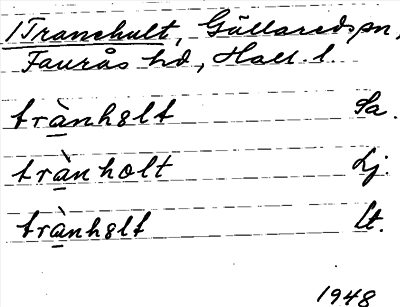 /Tranehult, Gällareds sn,
Faurås hd, Hall. l.
trànhult Sa.
trànholt Lj.
trànhult lt.
1948